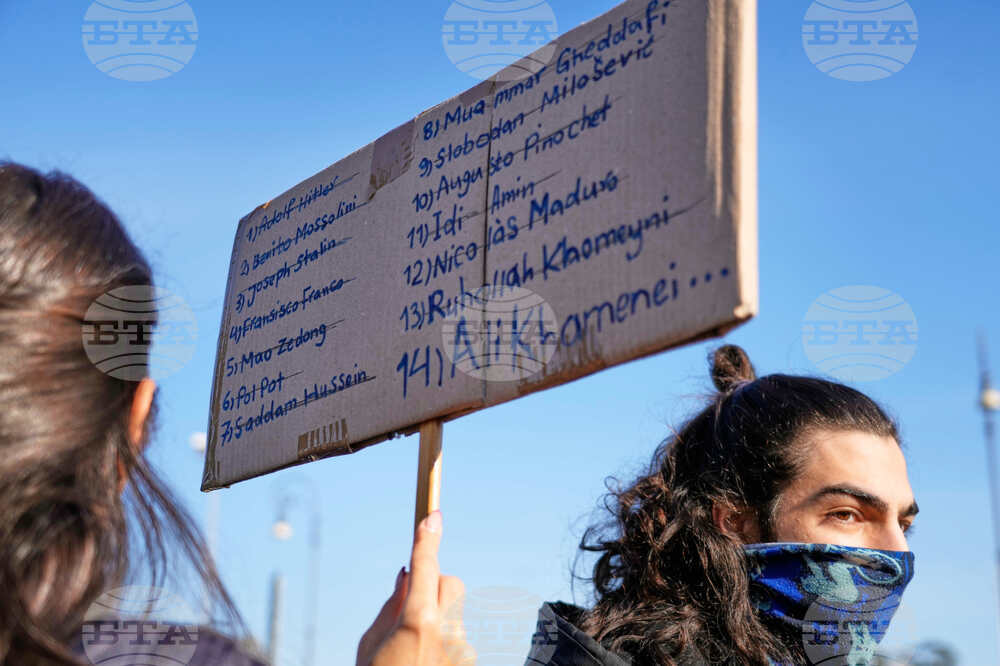 1) Adolf Hitler
2) Benito Mossolini
3) Joseph Stalin
4) Fransisco Franco
5) Mao Zedong
6) Pol Pot
7) Saddam Hussein
8) Muammar Gheddafi
9) Slobodan Milošević
10) Augusto Pinochet
11) Idi Amin
12) Nicolàs Maduro
13) Ruhollah Khomeyni
14) Ali Khamenei...
BTA
BTA
BTA
BTA
BTA
BTA
BTA
BTA
BTA